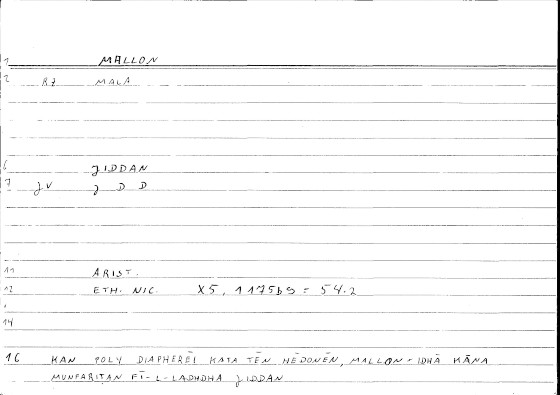 1 MALLON
2 RZ MALA
6 JIDDAN
7 JV J D D
11 ARIST.
12 ETH. NIC. X5, 1175b9 = 54.2
14
16 KAN POLY DIAPHERĒI KATA TĒN HĒDONĒN, MALLON = IDHĀ KĀNA
MUNFARITAN FĪ-L-LADHDHA JIDDAN